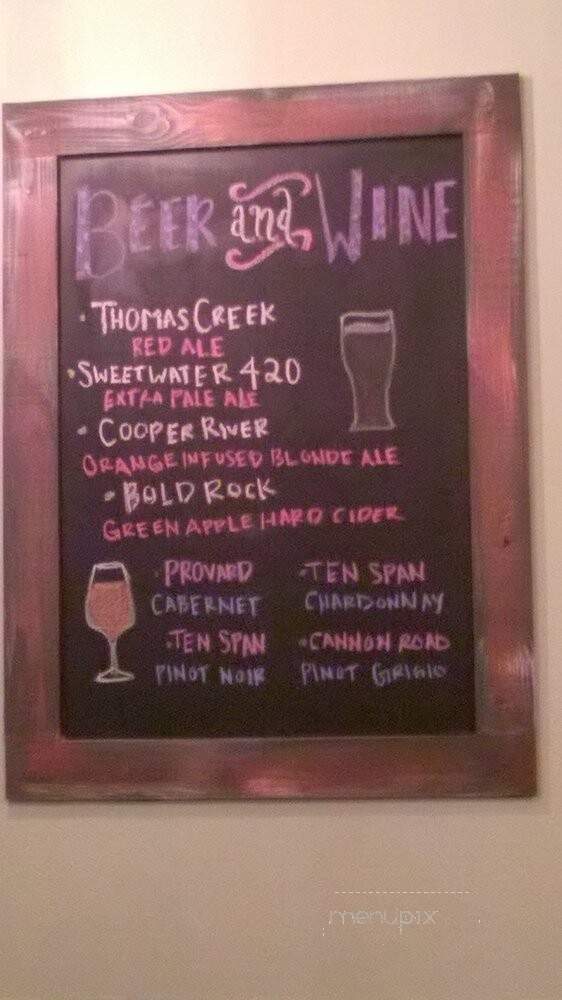 BEER and WINE
• THOMAS CREEK
RED ALE
• SWEETWATER 420
EXTRA PALE ALE
• COOPER RIVER
ORANGE INFUSED BLONDE ALE
• BOLD ROCK
GREEN APPLE HARD CIDER
• PROVARD
CABERNET
• TEN SPAN
PINOT NOIR
• TEN SPAN
CHARDONNAY
• CANNON ROAD
PINOT GRIGIO
menupix